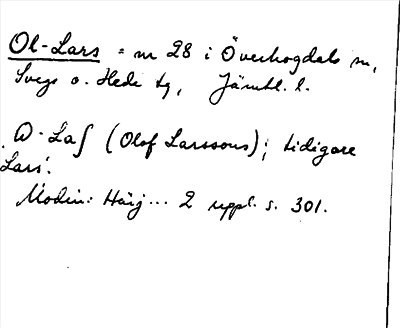 Ol-Lars = nr 28 i Överhogdals sn,
Svegs o. Hede tg, Jämtl. l.
(Olof Larssons); tidigare
Lars.
Modin: Härj... 2 uppl. s. 301.